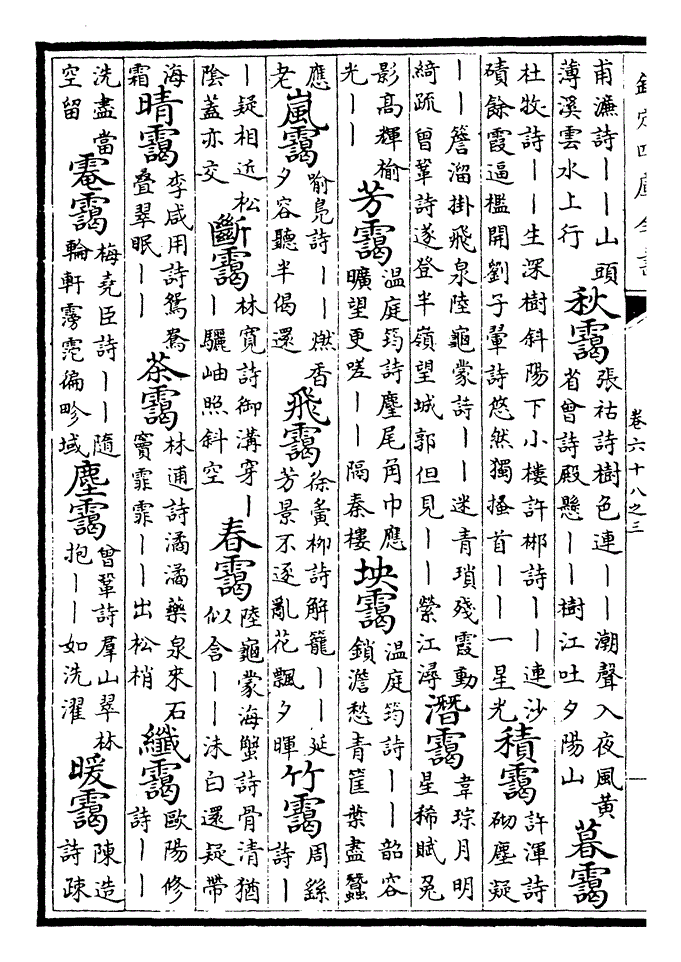 欽定四庫全書 卷六十八之三
甫濂詩——山頭
薄溪雲水上行
秋靄
張祜詩樹色連——潮聲入夜風黃
省曾詩殿懸——樹江吐夕陽山
暮靄
杜牧詩——生深樹斜陽下小樓許郴詩——連沙
磧餘霞逼檻開劉子翬詩悠然獨搔首——一星光
積靄
許渾詩
砌塵凝
——簷溜掛飛泉陸龜蒙詩——迷青瑣殘霞動
綺疏曾鞏詩遂登半嶺望城郭但見——縈江潯
潛靄
韋琮月明
星稀賦兔
影高輝榆
光——
芳靄
溫庭筠詩麈尾角巾應
曠望更嗟——隔秦樓
坱靄
溫庭筠詩——韶容
鎖澹愁青筐葉盡蠶
應
老
嵐靄
喻鳧詩——燃香
夕容聽半偈還
飛靄
徐夤柳詩解籠——延
芳景不逐亂花飄夕暉
竹靄
周繇
詩—
—疑相近松
陰蓋亦交
斷靄
林寬詩御溝穿—
—驪岫照斜空
春靄
陸龜蒙海蟹詩骨清猶
似含——沫白還疑帶
海
霜
晴靄
李咸用詩鴛鴦
疊翠眠——
茶靄
林逋詩潏潏藥泉來石
竇霏霏——出松梢
纖靄
歐陽修
詩——
洗盡當
空留
䨄靄
梅堯臣詩——隨
輪軒雱徧畛域
塵靄
曾鞏詩羣山翠林
抱——如洗濯
暖靄
陳造
詩疎